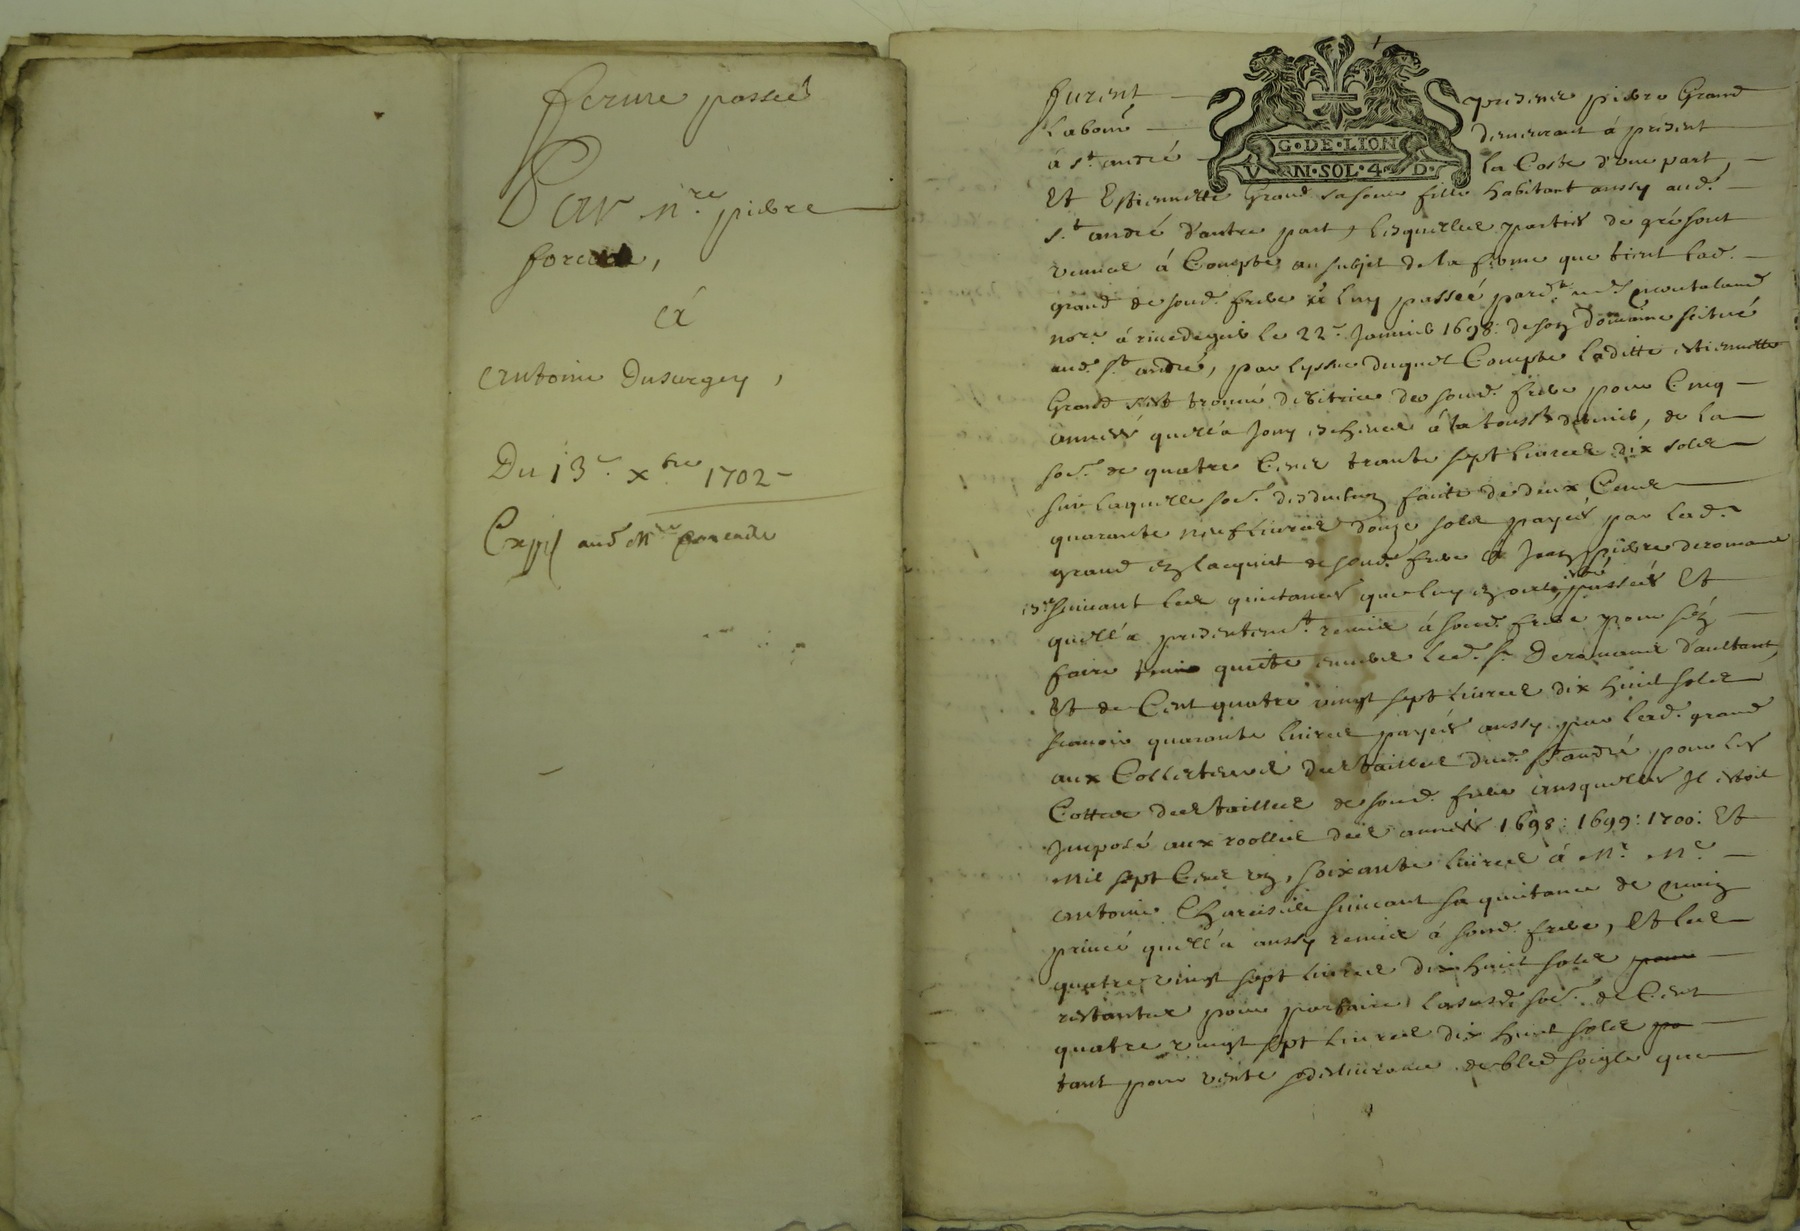 ferme passée
Par m.re pierre
à
Antoine Dusurgey,
Du 13.e x.bre 1702
Exp.é aud. M.re
furent presents pierre Grand
Laboure demeurant à présent
G·DE·LION
VN·SOL·4·D·
à s.t andré la Coste d'une part,
Et Estiennette Grand sa soeur fille habitant aussy aud.
s.t andré d'autre part, lesquelles parties de gré sont
venues à Compte au subjet de la ferme que tient lad.
grand de soud. frere à luy passée pard.t
no.re à rivedegier le 22.e Janvier 1698: de son domaine scitué
aud. s.t andré, par lyssue duquel Compte laditte estiennette
Grand s'est trouvé debitrice de soud. frere pour Cinq
années quell'a jouy escheues à la touss.ts dernier, de la
so.e de quatre Cens trante sept livres dix sols
sur laquelle so.e desduction faite de deux Cens
quarante neuf livres douze sols payés par lad.
grand en lacquit de soud. frere à Jean pierre deromans
suivant les quittances que luy en ont esté passées Et
quell'a presentem.t remis à soud. frere pour s'en
faire tenir quitte envers led. s.r Deromans d'aultant,
Et de Cent quatre vingt sept livres dix huit sols
scavoir quarante livres payés aussy par lad. grand
aux Collecteurs des tailles dud. s.t andré pour les
Cottes des tailles de soud. frere ausquelles Il estoit
Imposé aux roolles des années 1698: 1699: 1700: Et
Mil sept Cens un, soixante livres à M.r M.e
Antoine suivant sa quittance de main
privé quell'a aussy remise à soud. frere, Et les
quatre vingt sept livres dix huit sols
restantes pour parfaire lasusd. so.e de Cent
quatre vingt sept livres dix huit sols
tant pour vente deslivrance de bled soigle que